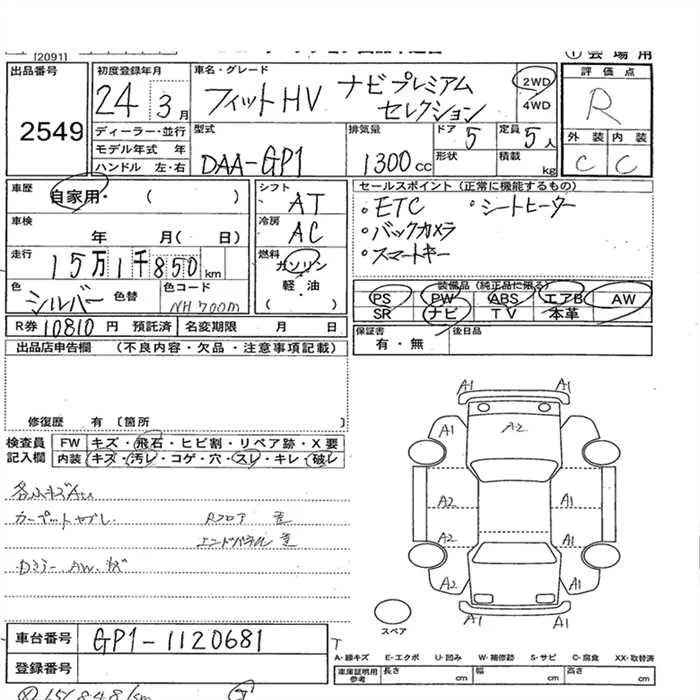 [2091]
① 会場用
出品番号 初度登録年月 車名・グレード 評価点
2549 24 3月 フィットHV ナビプレミアム セレクション 2WD 4WD R
ディーラー・並行 型式 排気量 ドア 5 定員 5人 外装 内装
モデル年式 年 DAA-GP1 1300cc 形状 積載 kg C C
ハンドル 左・右
車歴 自家用・( ) シフト AT セールスポイント (正常に機能するもの)
車検 年 月( 日) 冷房 AC ・ETC ・シートヒーター
・バックカメラ
走行 15万1千850km 燃料 ガソリン ・スマートキー
軽・油
( )
色 シルバー 色替 色コード NH700m 装備品 (純正品に限る)
PS PW ABS エアB AW
SR ナビ TV 本革
R券 10810円 預託済 名変期限 月 日 保証書 有・無 後日品
出品店申告欄 (不良内容・欠品・注意事項記載)
修復歴 有〔箇所 〕
検査員 記入欄 FW キズ・飛石・ヒビ割・リペア跡・X要
内装 キズ・汚レ・コゲ・穴・スレ・キレ・破レ
カーペットヤブレ Rフロア
エンドパネル
AW、キズ
A1 A1
A1 A2 A1
A2 A1
A2 A1
A1 A1
スペア
車台番号 GP1-1120681
登録番号
A-線キズ E-エクボ U-凹み W-補修跡 S-サビ C-腐食 XX-取替済
車庫証明用参考 長さ cm 幅 cm 高さ cm
151848km